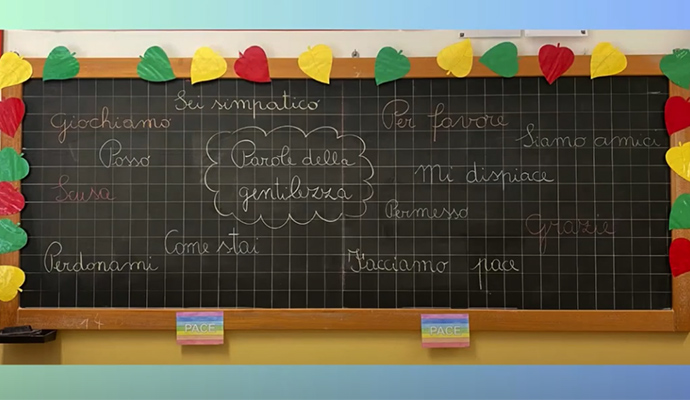 Sei simpatico
Giochiamo
Per favore
Siamo amici
Posso
Parole della
gentilezza
Mi dispiace
Scusa
Permesso
Grazie
Come stai
Perdonami
Facciamo pace
PACE
PACE